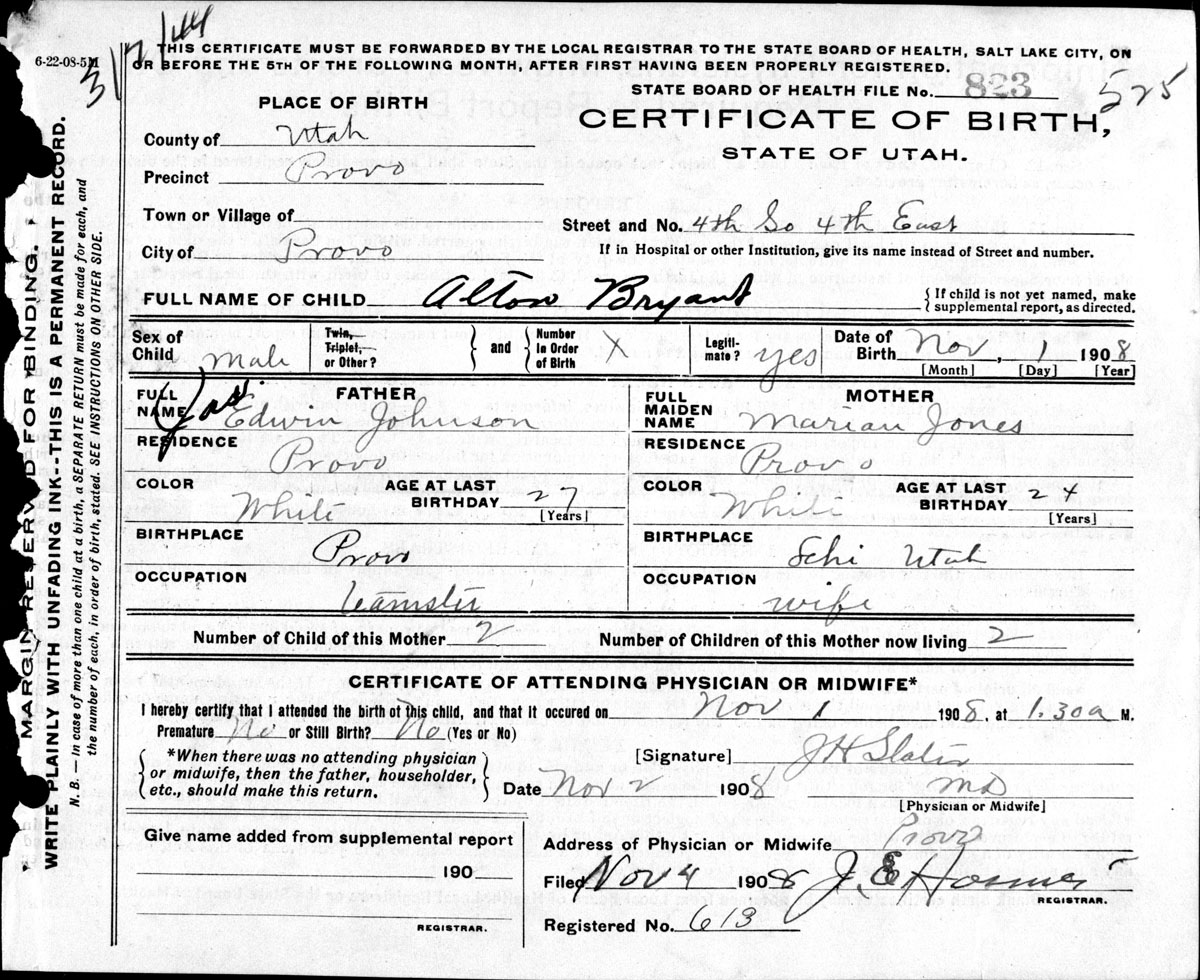 6-22-08-5M
3/7/44
THIS CERTIFICATE MUST BE FORWARDED BY THE LOCAL REGISTRAR TO THE STATE BOARD OF HEALTH, SALT LAKE CITY, ON
OR BEFORE THE 5TH OF THE FOLLOWING MONTH, AFTER FIRST HAVING BEEN PROPERLY REGISTERED.
STATE BOARD OF HEALTH FILE No. 823 525
PLACE OF BIRTH
CERTIFICATE OF BIRTH,
STATE OF UTAH.
County of Utah
Precinct Provo
Town or Village of
Street and No. 4th So 4th East
City of Provo
If in Hospital or other institution, give its name instead of Street and number.
FULL NAME OF CHILD Alton Bryant
{ If child is not yet named, make supplemental report, as directed.
Sex of Child Male
Twin, Triplet, or Other? } and { Number in Order of Birth X
Legiti-mate? yes
Date of Birth Nov, 1 1908
[Month] [Day] [Year]
FATHER
FULL NAME Jas. Edwin Johnson
MOTHER
FULL MAIDEN NAME Marian Jones
RESIDENCE Provo
RESIDENCE Provo
COLOR White AGE AT LAST BIRTHDAY 27 [Years]
COLOR White AGE AT LAST BIRTHDAY 24 [Years]
BIRTHPLACE Provo
BIRTHPLACE Utah
OCCUPATION teamster
OCCUPATION wife
Number of Child of this Mother 2 Number of Children of this Mother now living 2
CERTIFICATE OF ATTENDING PHYSICIAN OR MIDWIFE*
I hereby certify that I attended the birth of this child, and that it occured on Nov 1 1908, at 1.30 a M.
Premature No or Still Birth? No (Yes or No)
*When there was no attending physician
or midwife, then the father, householder,
etc., should make this return.
[Signature] J H Slater
Date Nov 2 1908 MD
[Physician or Midwife]
Give name added from supplemental report
190
REGISTRAR.
Address of Physician or Midwife Provo
Filed Nov 4 1908 J. E.
REGISTRAR.
Registered No. 613
MARGIN RESERVED FOR BINDING.
WRITE PLAINLY WITH UNFADING INK---THIS IS A PERMANENT RECORD.
N. B. — In case of more than one child at a birth, a SEPARATE RETURN must be made for each, and
the number of each, in order of birth, stated. SEE INSTRUCTIONS ON OTHER SIDE.